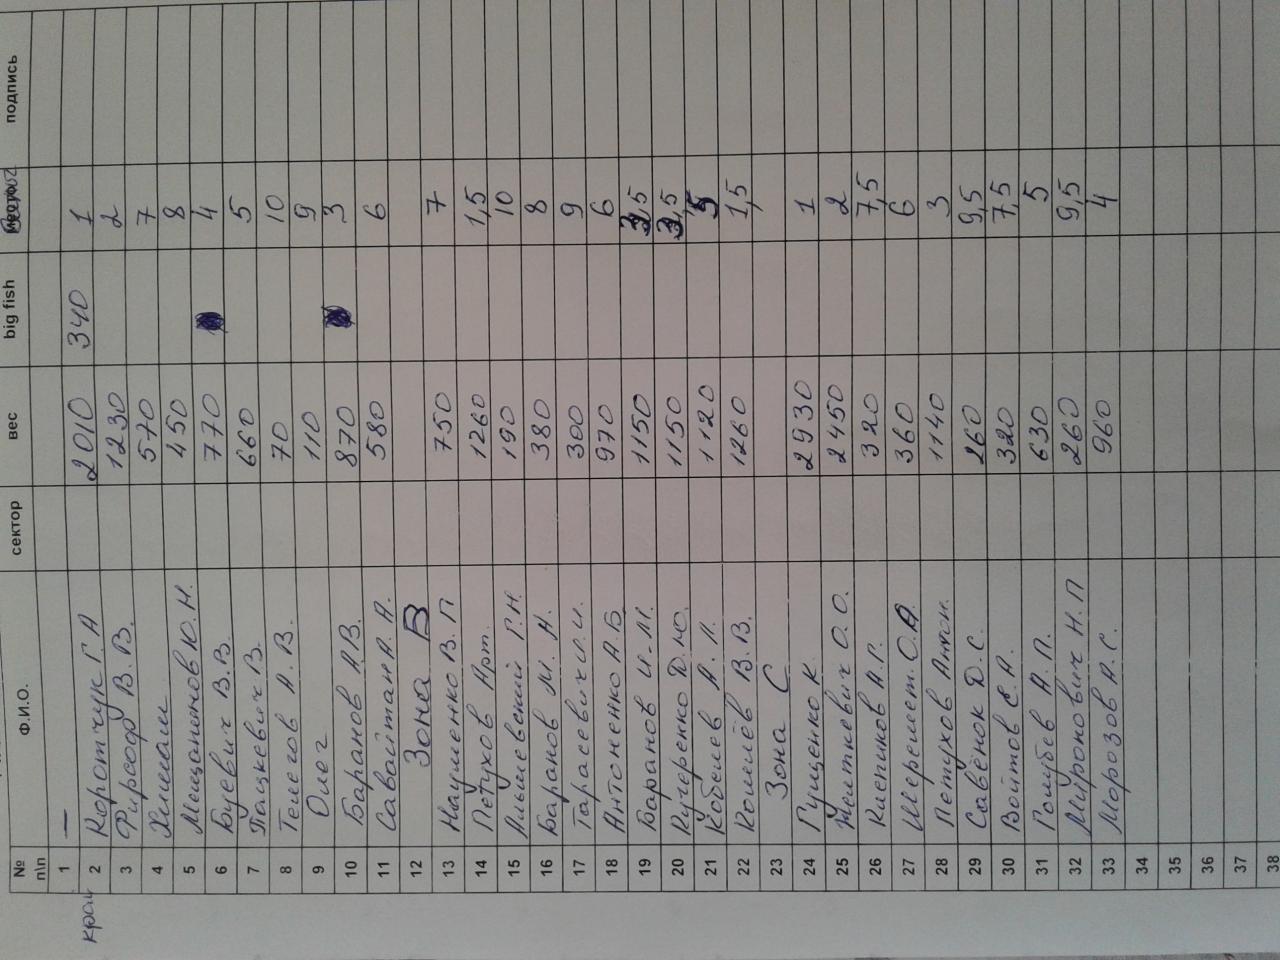 № п\п Ф.И.О. сектор вес big fish место подпись
1 —
2 Коротчук Г.А 2010 340 1
3 Фирсов В.В. 1230 2
4 570 7
5 Мещанинов Ю.Н. 450 8
6 Буевич В.В. 770 4
7 Пацкевич В. 660 5
8 Телегов А.В. 70 10
9 Олег 110 9
10 Баранов А.В. 870 3
11 Савайтан А.А. 580 6
12 Зона В
13 Науменко В.П 750 7
14 Петухов Арт. 1260 1,5
15 Г.Н. 190 10
16 Баранов М.Н. 380 8
17 Тарасевич И.И. 300 9
18 Антоненко А.Б. 970 6
19 Баранов И.М. 1150 3,5
20 Кучеренко Д.Ю. 1150 3,5
21 Кобелев А.Л. 1120 5
22 Комлёв В.В. 1260 1,5
23 Зона С
24 Гущенко К. 2930 1
25 Желткевич О.О. 2450 2
26 Клепиков А.Г. 320 7,5
27 Шеремет О.А. 360 6
28 Петухов Антон. 1140 3
29 Савёнок Д.С. 260 9,5
30 Войтов Е.А. 320 7,5
31 Голубев А.П. 630 5
32 Миронович Н.П 260 9,5
33 Морозов А.С. 960 4
34
35
36
37
38